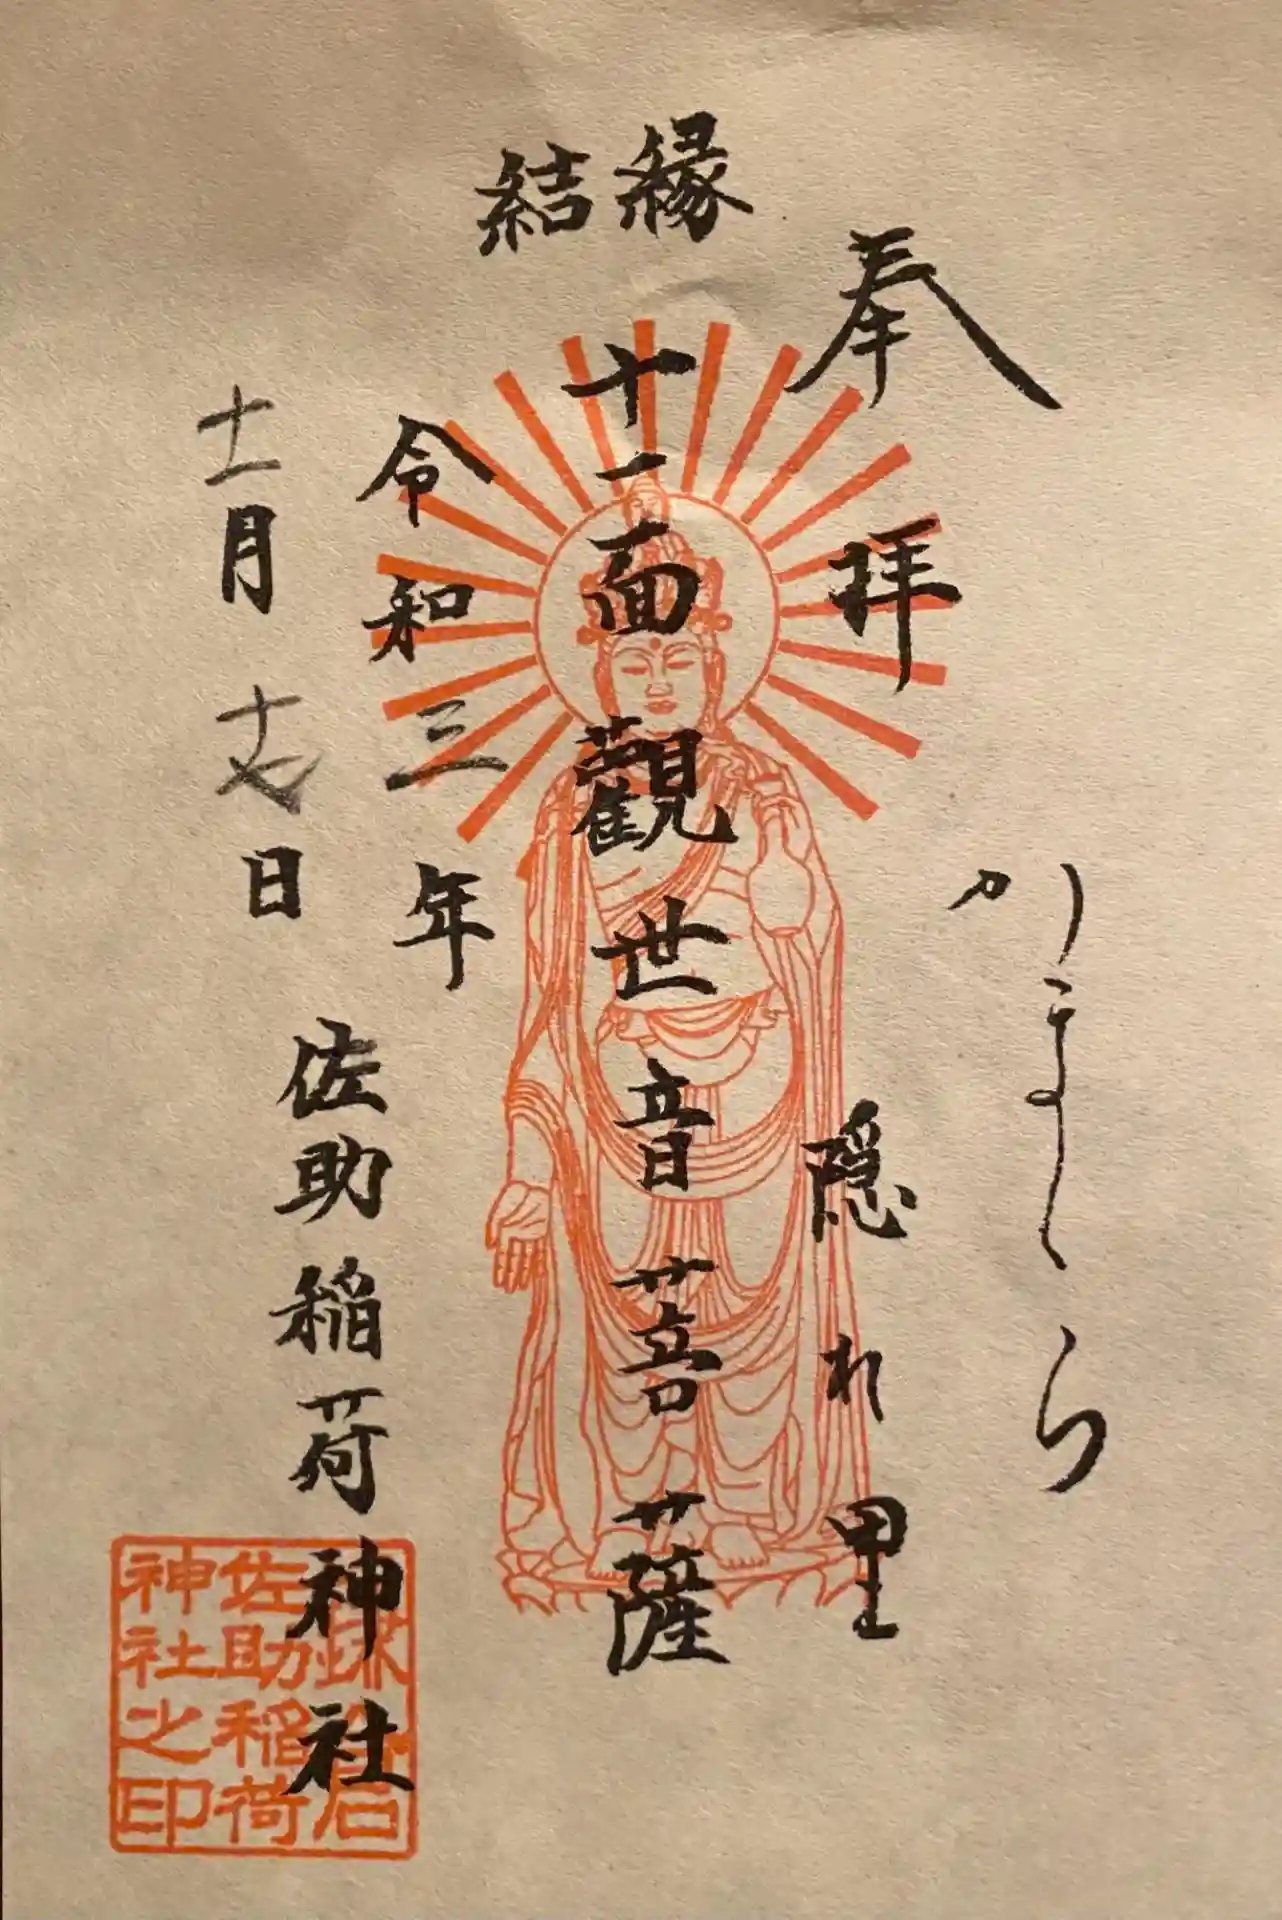 奉拝
かまくら
隠れ里
縁結
十一面觀世音菩薩
令和三年
十一月十七日
佐助稲荷神社
佐助稲荷
神社之印